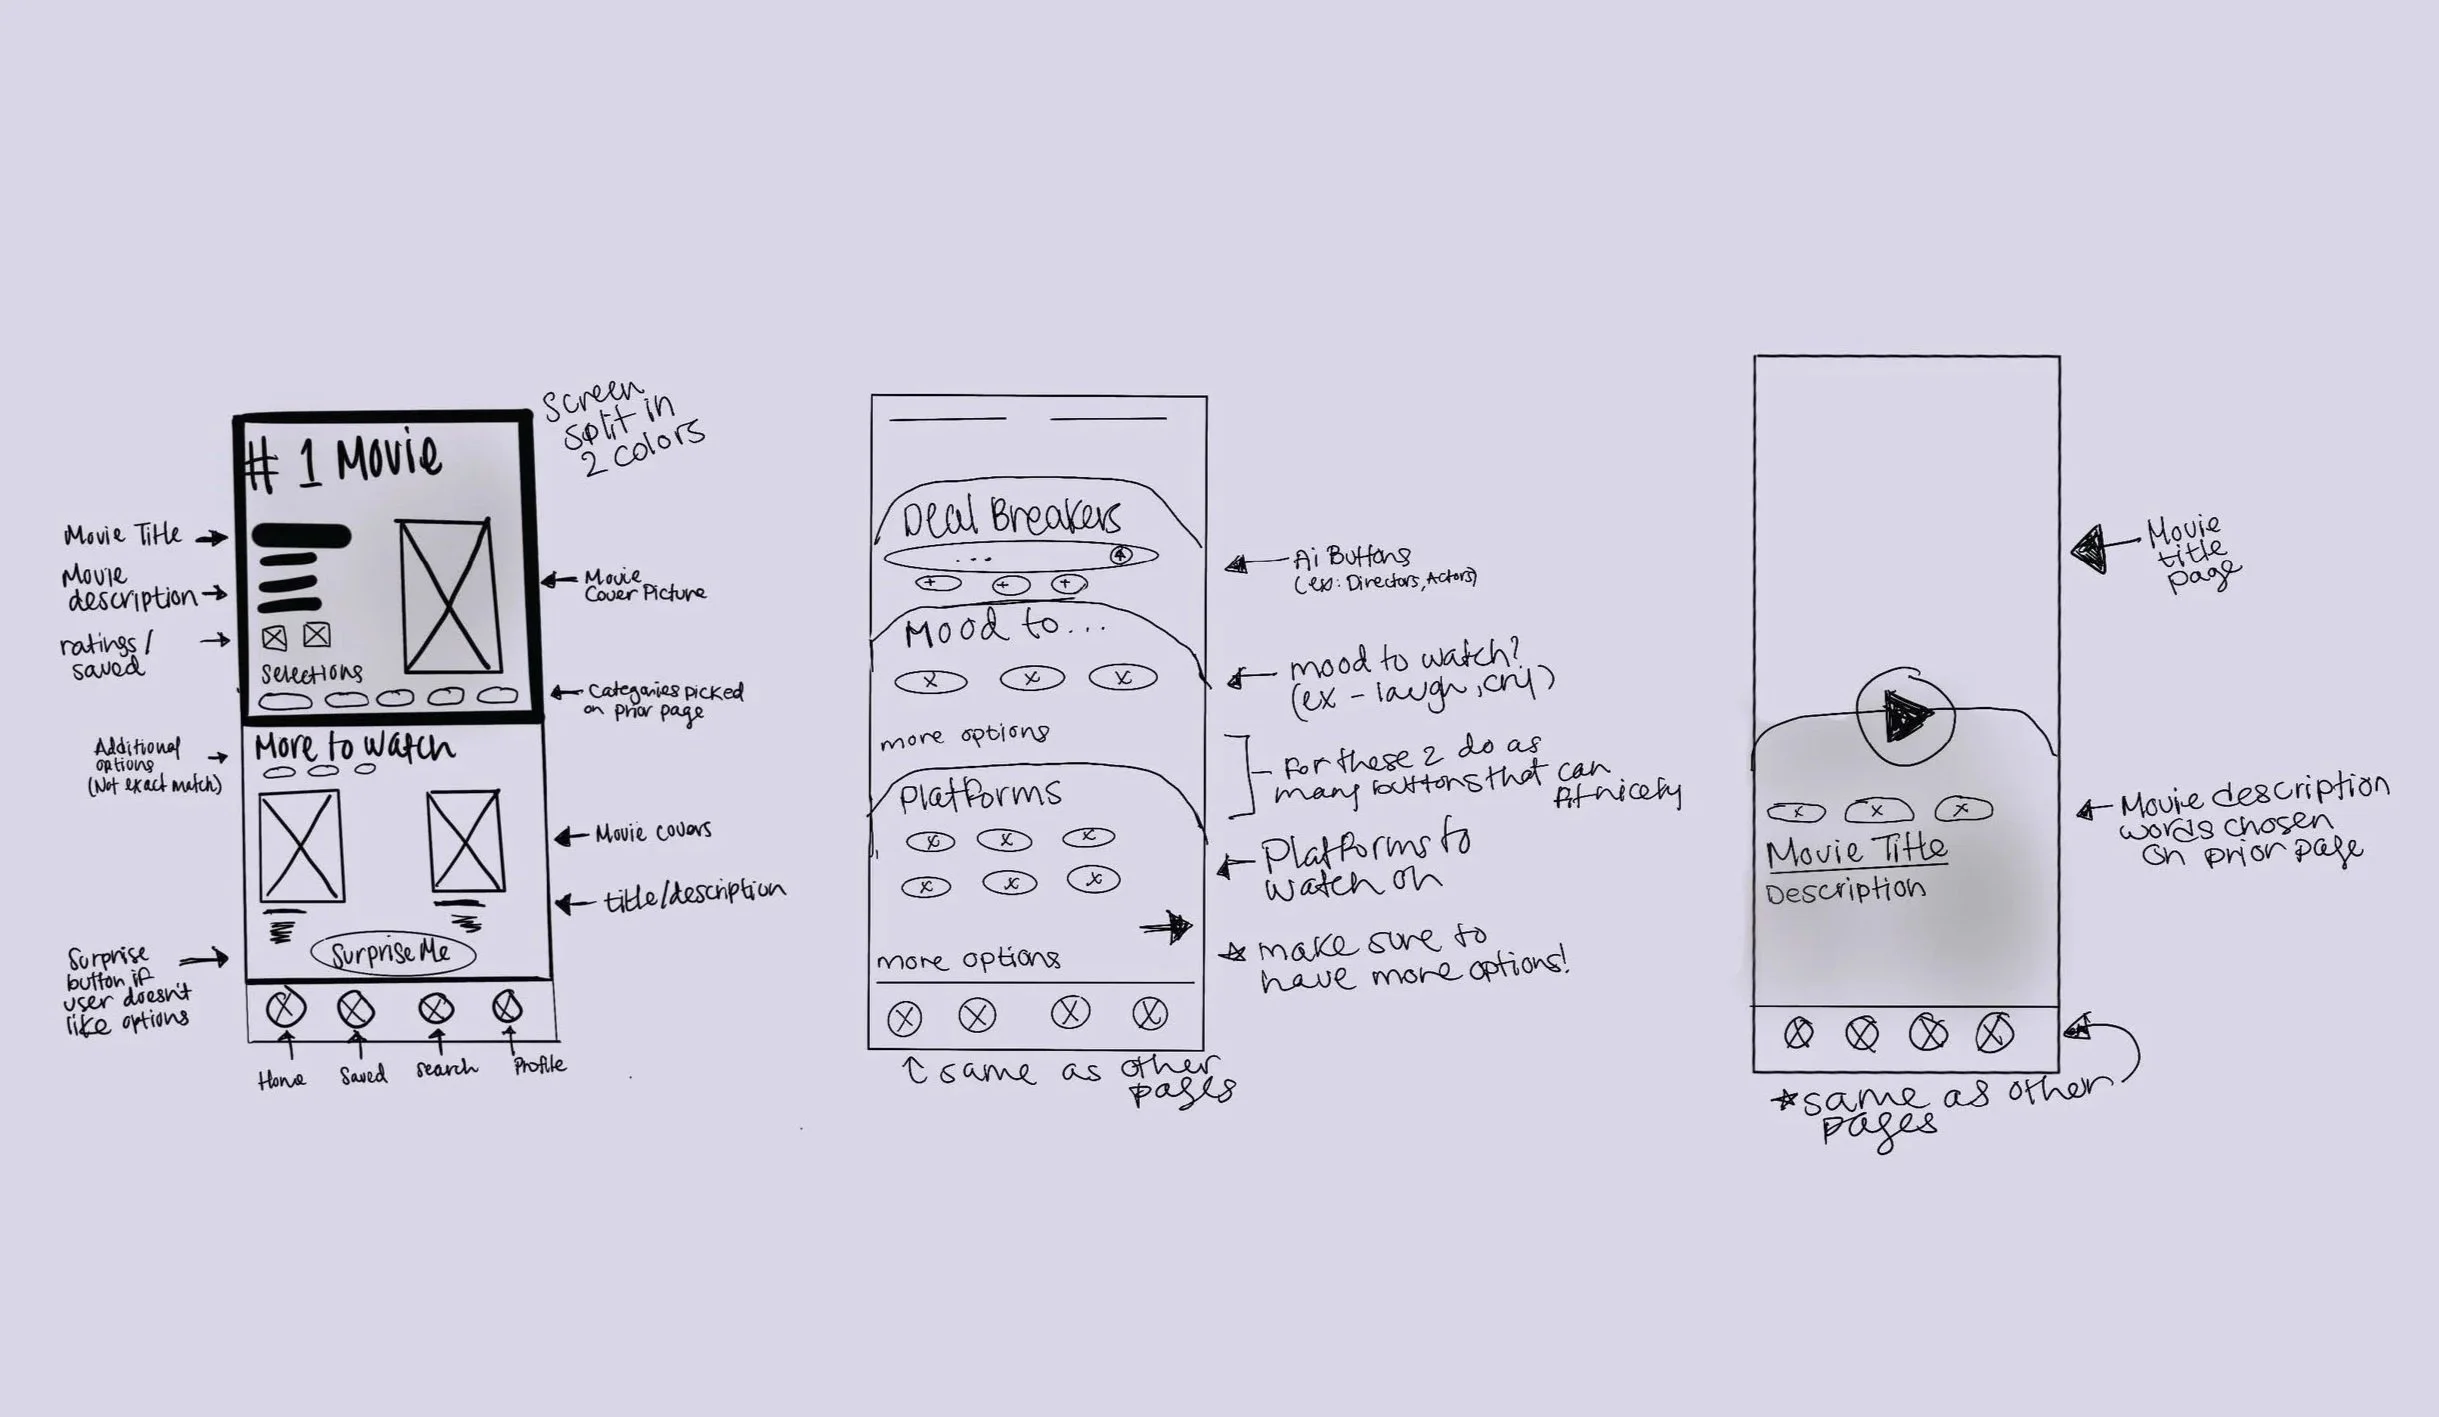 Screen
split in
2 colors
# 1 Movie
Movie Title
Movie
description
ratings/
saved
Movie
Cover Picture
Selections
Categories picked
on prior page
Additional
options
(Not exact match)
More to watch
Movie covers
title/description
Surprise
button if
user doesn't
like options
Surprise Me
Home
Saved
Search
Profile
Deal Breakers
...
Ai Buttons
(ex: Directors, Actors)
Mood to...
mood to watch?
(ex - laugh, cry)
more options
For these 2 do as
many buttons that can
fit nicely
Platforms
Platforms to
watch on
more options
make sure to
have more options!
same as other
pages
Movie
title
page
Movie description
words chosen
on prior page
Movie Title
Description
same as other
pages